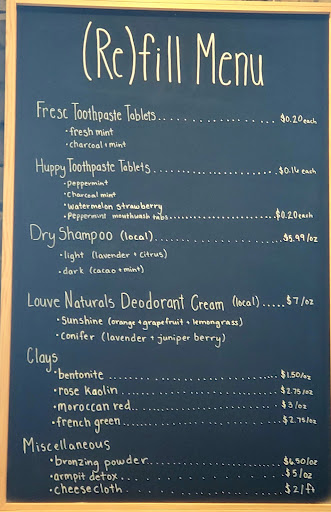 (Re)fill Menu
Fresc Toothpaste Tablets.................$0.20 each
• fresh mint
• charcoal + mint
Huppy Toothpaste Tablets.................$0.16 each
• peppermint
• charcoal mint
• watermelon strawberry
• Peppermint mouthwash tabs.................$0.20 each
Dry Shampoo (local).................$5.99/oz
• light (lavender + citrus)
• dark (cacao + mint)
Louve Naturals Deodorant Cream (local).....$7/oz
• Sunshine (orange + grapefruit + lemongrass)
• Conifer (lavender + juniper berry)
Clays
• bentonite.................$1.50/oz
• rose kaolin.................$2.75/oz
• moroccan red.................$3/oz
• french green.................$2.75/oz
Miscellaneous
• bronzing powder.................$6.50/oz
• armpit detox.................$5/oz
• cheesecloth.................$2/ft